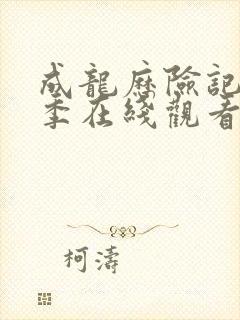 成龍歷險記
季在綫觀看
柯濤